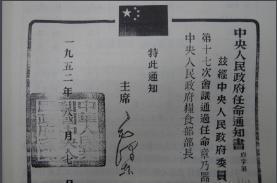 中央人民政府任命通知書 府字第
茲經中央人民政府委員
第十七次會議通過任命章乃器
中央人民政府糧食部部長
特此通知
主席
毛澤東
一九五二年八月八日